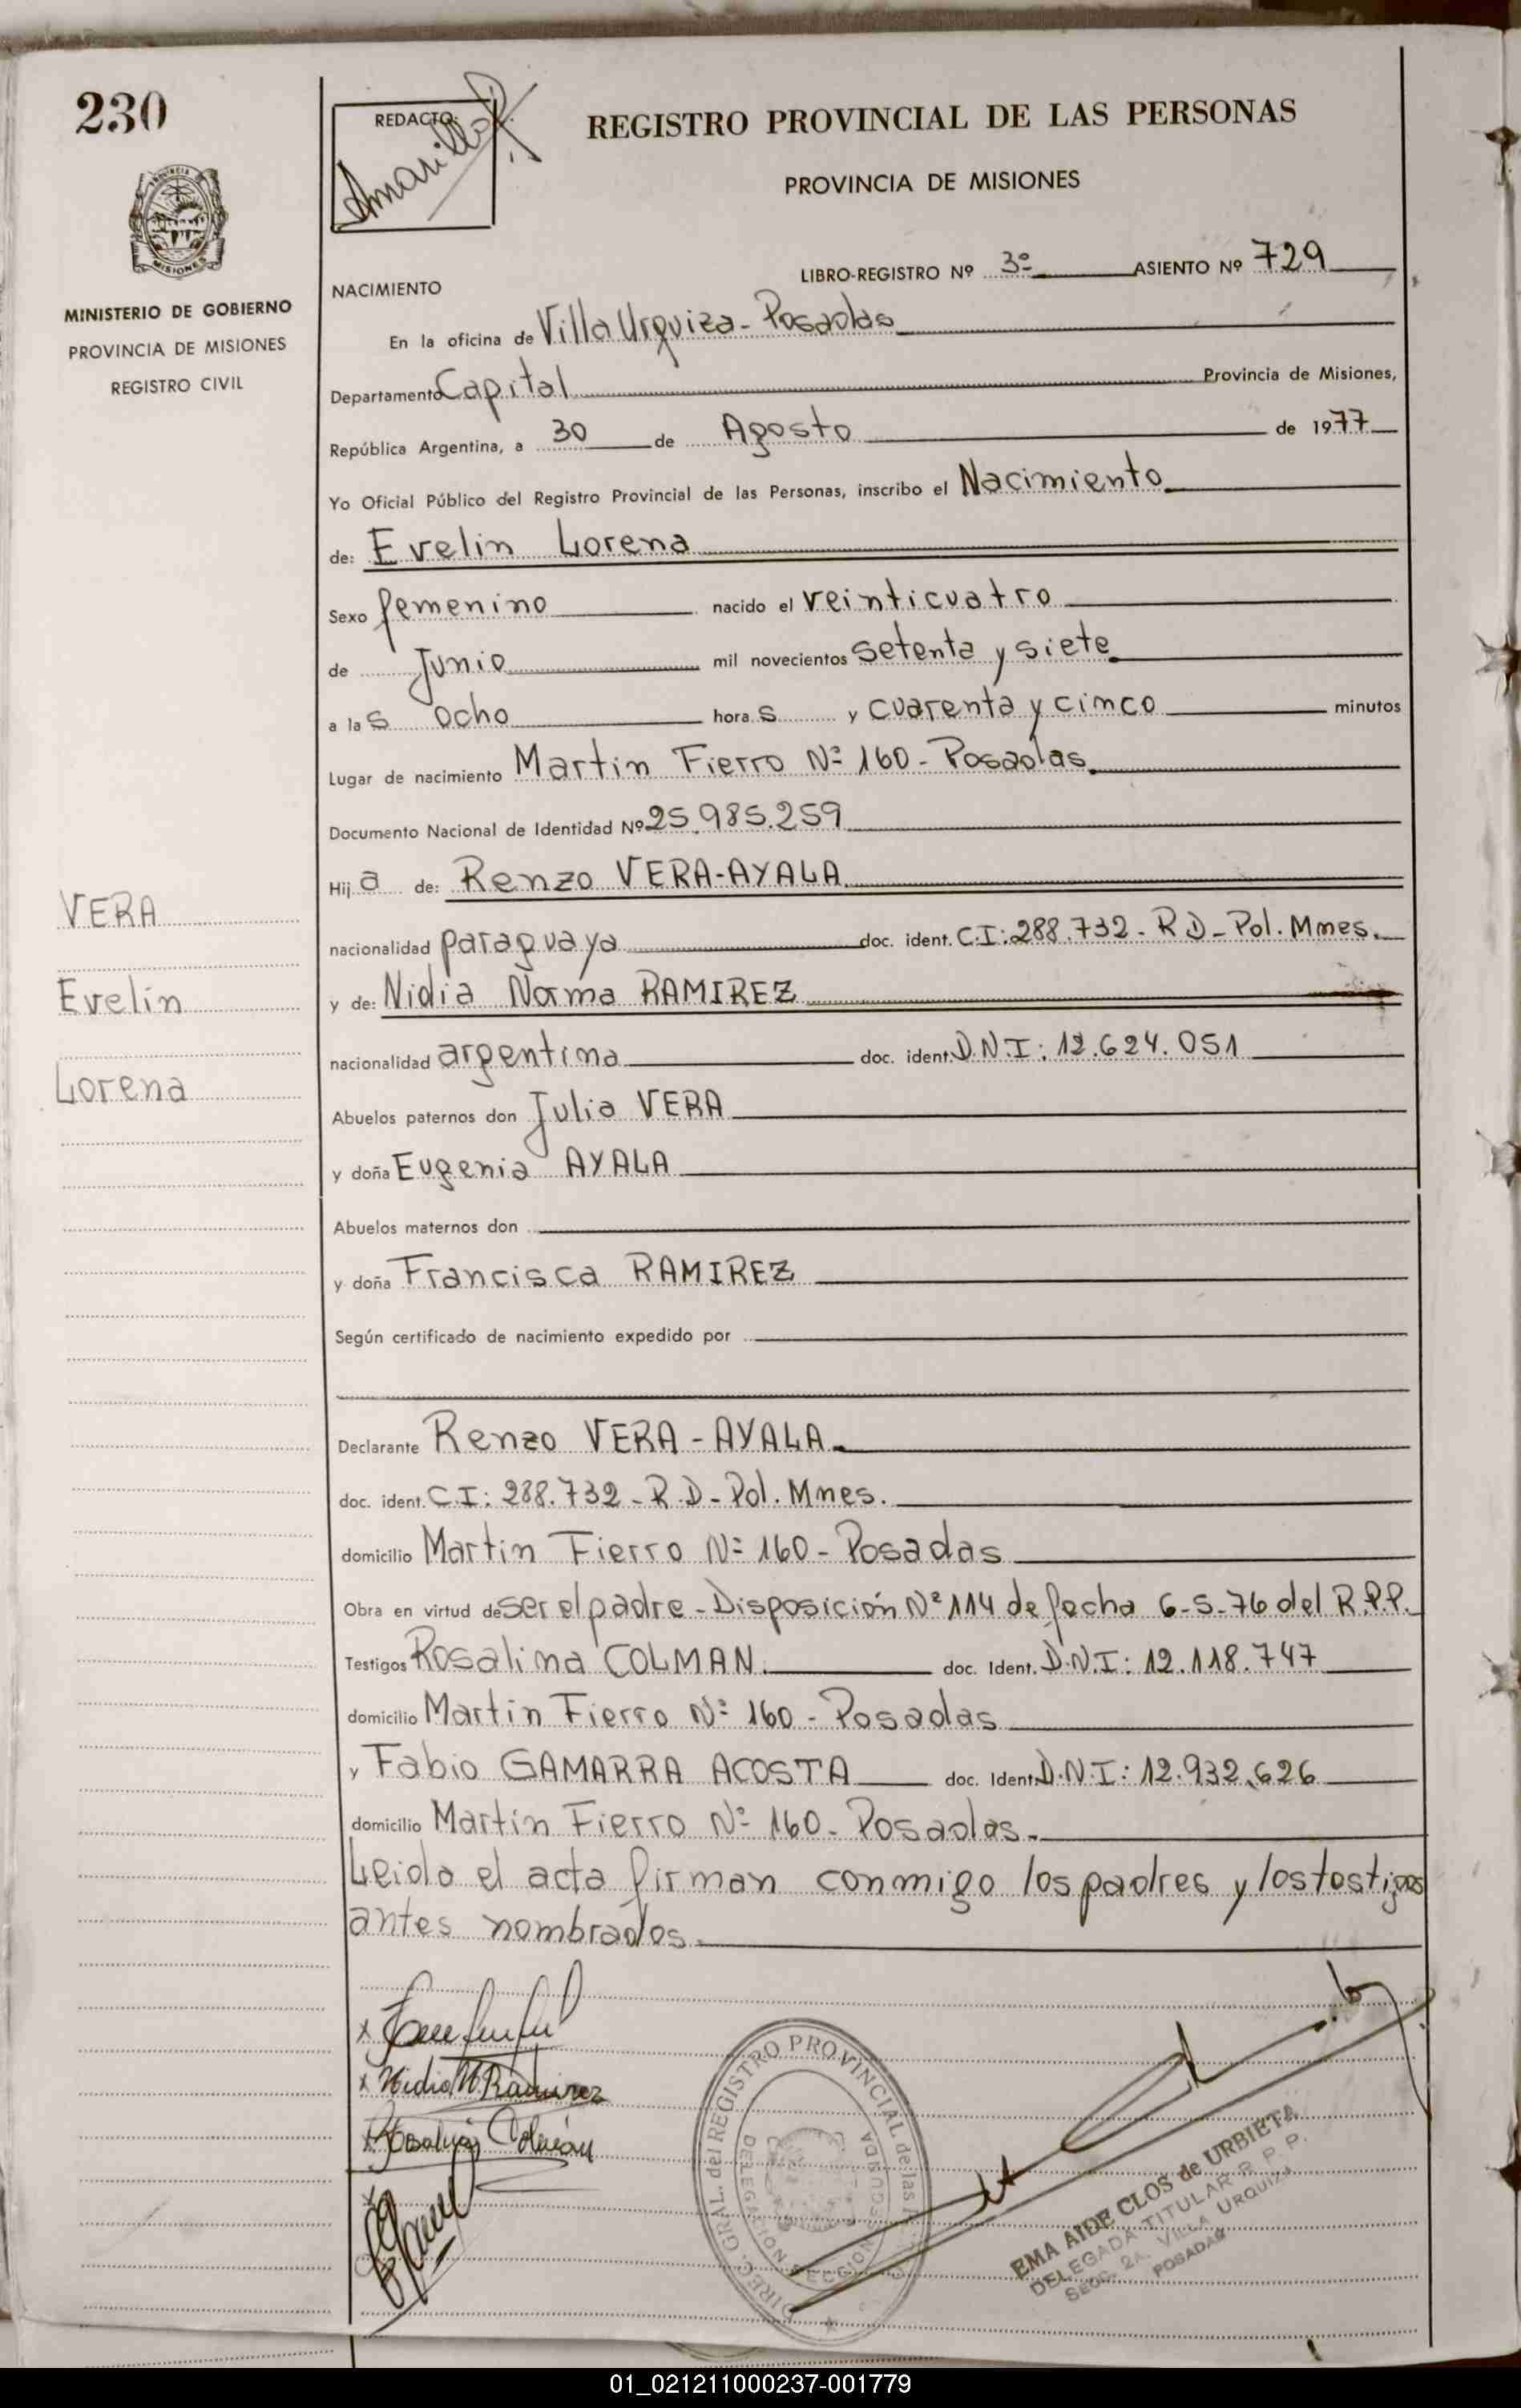 230
REDACTO:
Amarillo
REGISTRO PROVINCIAL DE LAS PERSONAS
PROVINCIA DE MISIONES
PROVINCIA
MISIONES
MINISTERIO DE GOBIERNO
PROVINCIA DE MISIONES
REGISTRO CIVIL
LIBRO-REGISTRO Nº 3º ASIENTO Nº 729
NACIMIENTO
En la oficina de Villa Urquiza - Posadas
Departamento Capital Provincia de Misiones,
República Argentina, a 30 de Agosto de 1977
Yo Oficial Público del Registro Provincial de las Personas, inscribo el Nacimiento
de: Evelin Lorena
Sexo femenino nacido el veinticuatro
de Junio mil novecientos setenta y siete
a las ocho horas y cuarenta y cinco minutos
Lugar de nacimiento Martin Fierro Nº 160 - Posadas.
Documento Nacional de Identidad Nº 25.985.259
Hija de: Renzo VERA-AYALA
nacionalidad paraguaya doc. ident. C.I: 288.732 - R D - Pol. Mnes.
y de: Nidia Norma RAMIREZ
nacionalidad argentina doc. ident. D.N.I: 12.624.051
Abuelos paternos don Julia VERA
y doña Eugenia AYALA
Abuelos maternos don
y doña Francisca RAMIREZ
Según certificado de nacimiento expedido por
Declarante Renzo VERA - AYALA
doc. ident. C.I: 288.732 - R.D - Pol. Mnes.
domicilio Martin Fierro Nº 160 - Posadas
Obra en virtud de ser el padre - Disposición Nº 114 de fecha 6-5-76 del R.P.P.
Testigos Rosalina COLMAN doc. Ident. D.N.I: 12.118.747
domicilio Martin Fierro Nº 160 - Posadas
y Fabio GAMARRA ACOSTA doc. Ident. D.N.I: 12.932.626
domicilio Martín Fierro Nº 160 - Posadas.
Leida el acta firman conmigo los padres y los testigos
antes nombrados.
VERA
Evelin
Lorena
x
x Nidia N Ramirez
x Rosalina Colman
x
DIREC. GRAL. del REGISTRO PROVINCIAL de las
DELEGACION SECCION SEGUNDA
EMA AIDE CLOS de URBIETA
DELEGADA TITULAR R. P. P.
Secc. 2a. VILLA URQUIZA
POSADAS
01_021211000237-001779